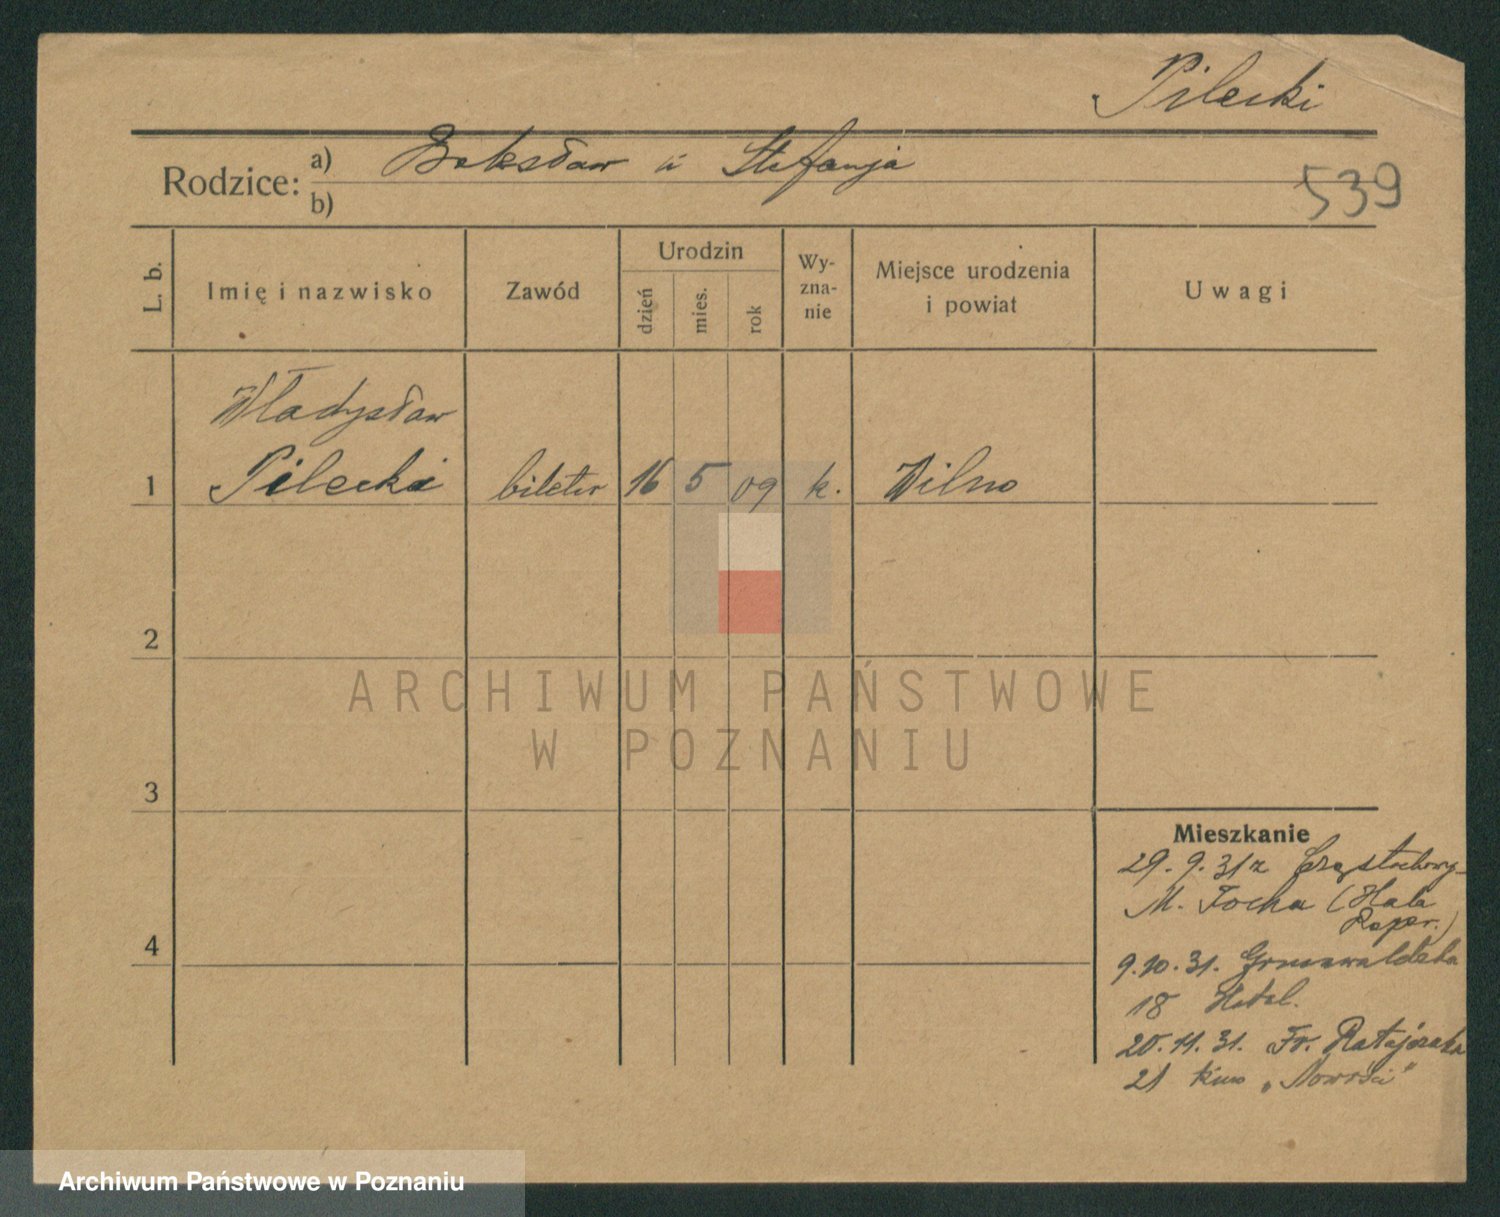 Pilecki
Rodzice: a) Bolesław i Stefanja
b)
539
L. b.
Imię i nazwisko
Zawód
Urodzin
dzień
mies.
rok
Wy-
zna-
nie
Miejsce urodzenia
i powiat
Uwagi
Władysław
1 Pilecki bileter 16 5 09 k. Wilno
2
ARCHIWUM PAŃSTWOWE
W POZNANIU
3
Mieszkanie
29.9.31 z Częstochowy
M. Focha (Hala
Repr.)
4
9.10.31. Grunwaldzka
18 Hotel.
20.11.31. Fr. Ratajczaka
21 kino „Nowości"
Archiwum Państwowe w Poznaniu